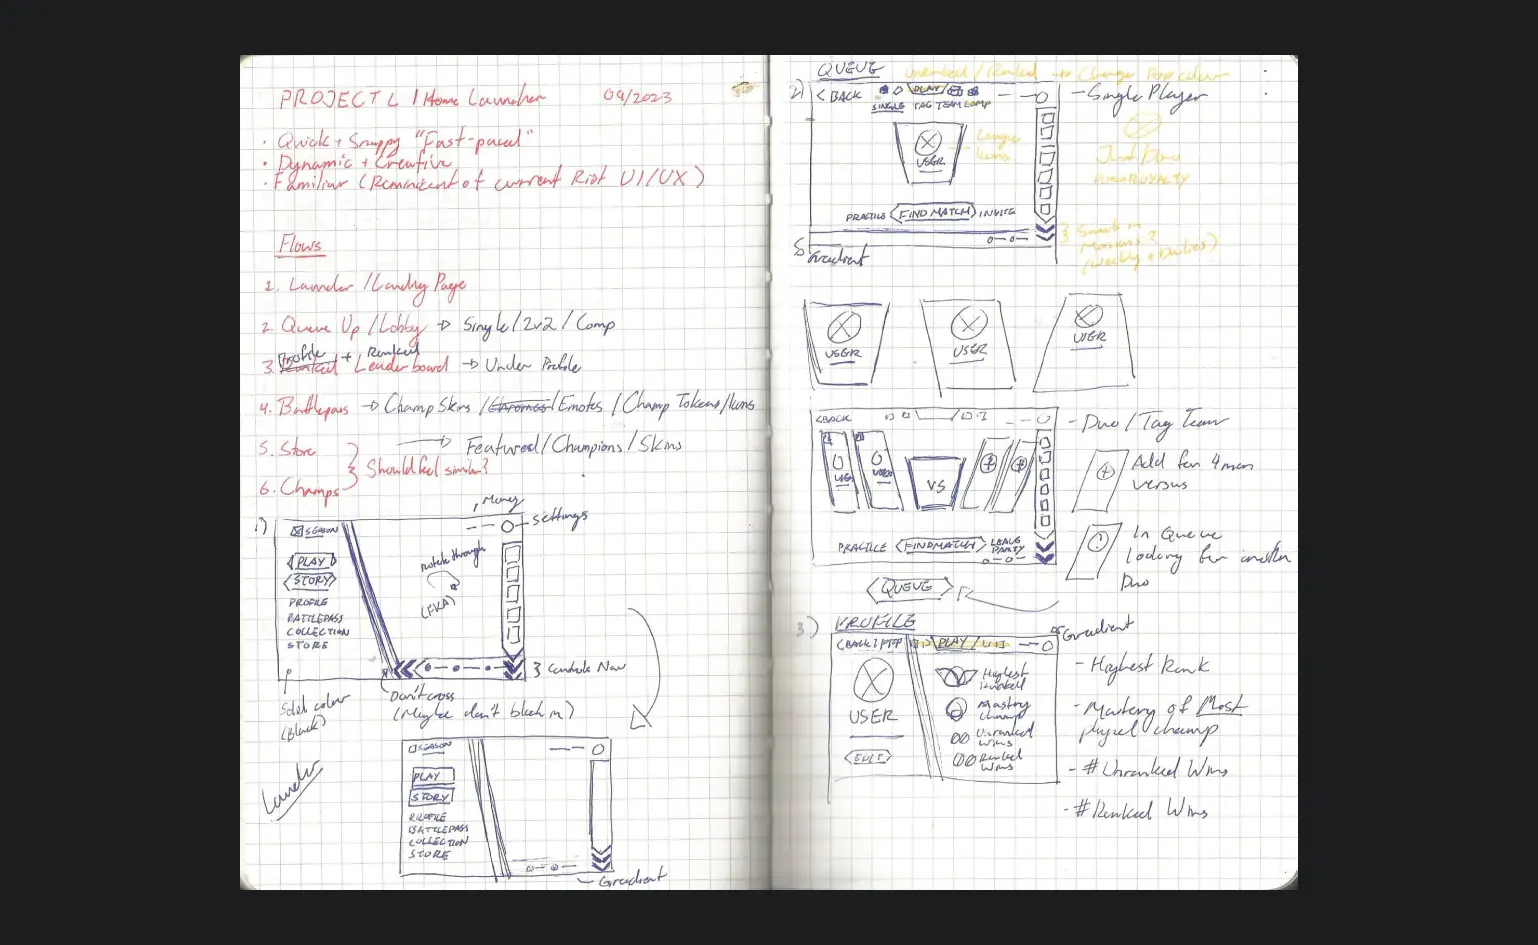 PROJECT L / Home Launcher 09/2023
· Quick + Snappy "Fast-paced"
· Dynamic + Creative
· Familiar (Reminicent of current Riot UI/UX)
Flows
1. Launcher / Landing Page
2. Queue Up / Lobby → Single / 2v2 / Comp
Profile + Ranked
3. Ranked Leaderboard → Under Profile
4. Battlepass → Champ Skins / Chromas / Emotes / Champ Tokens / Icons
5. Store → Featured / Champions / Skins
} Should feel similar?
6. Champs
1)
Money
Settings
SEASON
PLAY
STORY
PROFILE
BATTLEPASS
COLLECTION
STORE
Rotate through
(FKA)
} Controls Nav
Solid colour
(Black)
Don't cross
(Maybe don't block in)
Launcher
SEASON
PLAY
STORY
PROFILE
BATTLEPASS
COLLECTION
STORE
Gradient
QUEUE
unranked / Ranked → Change
2)
< BACK
PLAY
SINGLE TAG TEAM COMP
- Single Player
USER
League
Icons
PRACTICE < FIND MATCH > INVITE
Gradient
Missions?
(Weekly + Dailies)
USER
USER
USER
< BACK
- Duo / Tag Team
USER
VS
Add for 4 man
versus
PRACTICE < FIND MATCH > LEAVE
PARTY
In Queue
looking for another
Duo
< QUEUE >
3) PROFILE
Gradient
< BACK
PLAY
USER
< EDIT >
Highest
Ranked
Mastry
champ
Unranked
Wins
Ranked
Wins
- Highest Rank
- Mastery of Most
played champ
- # Unranked Wins
- # Ranked Wins